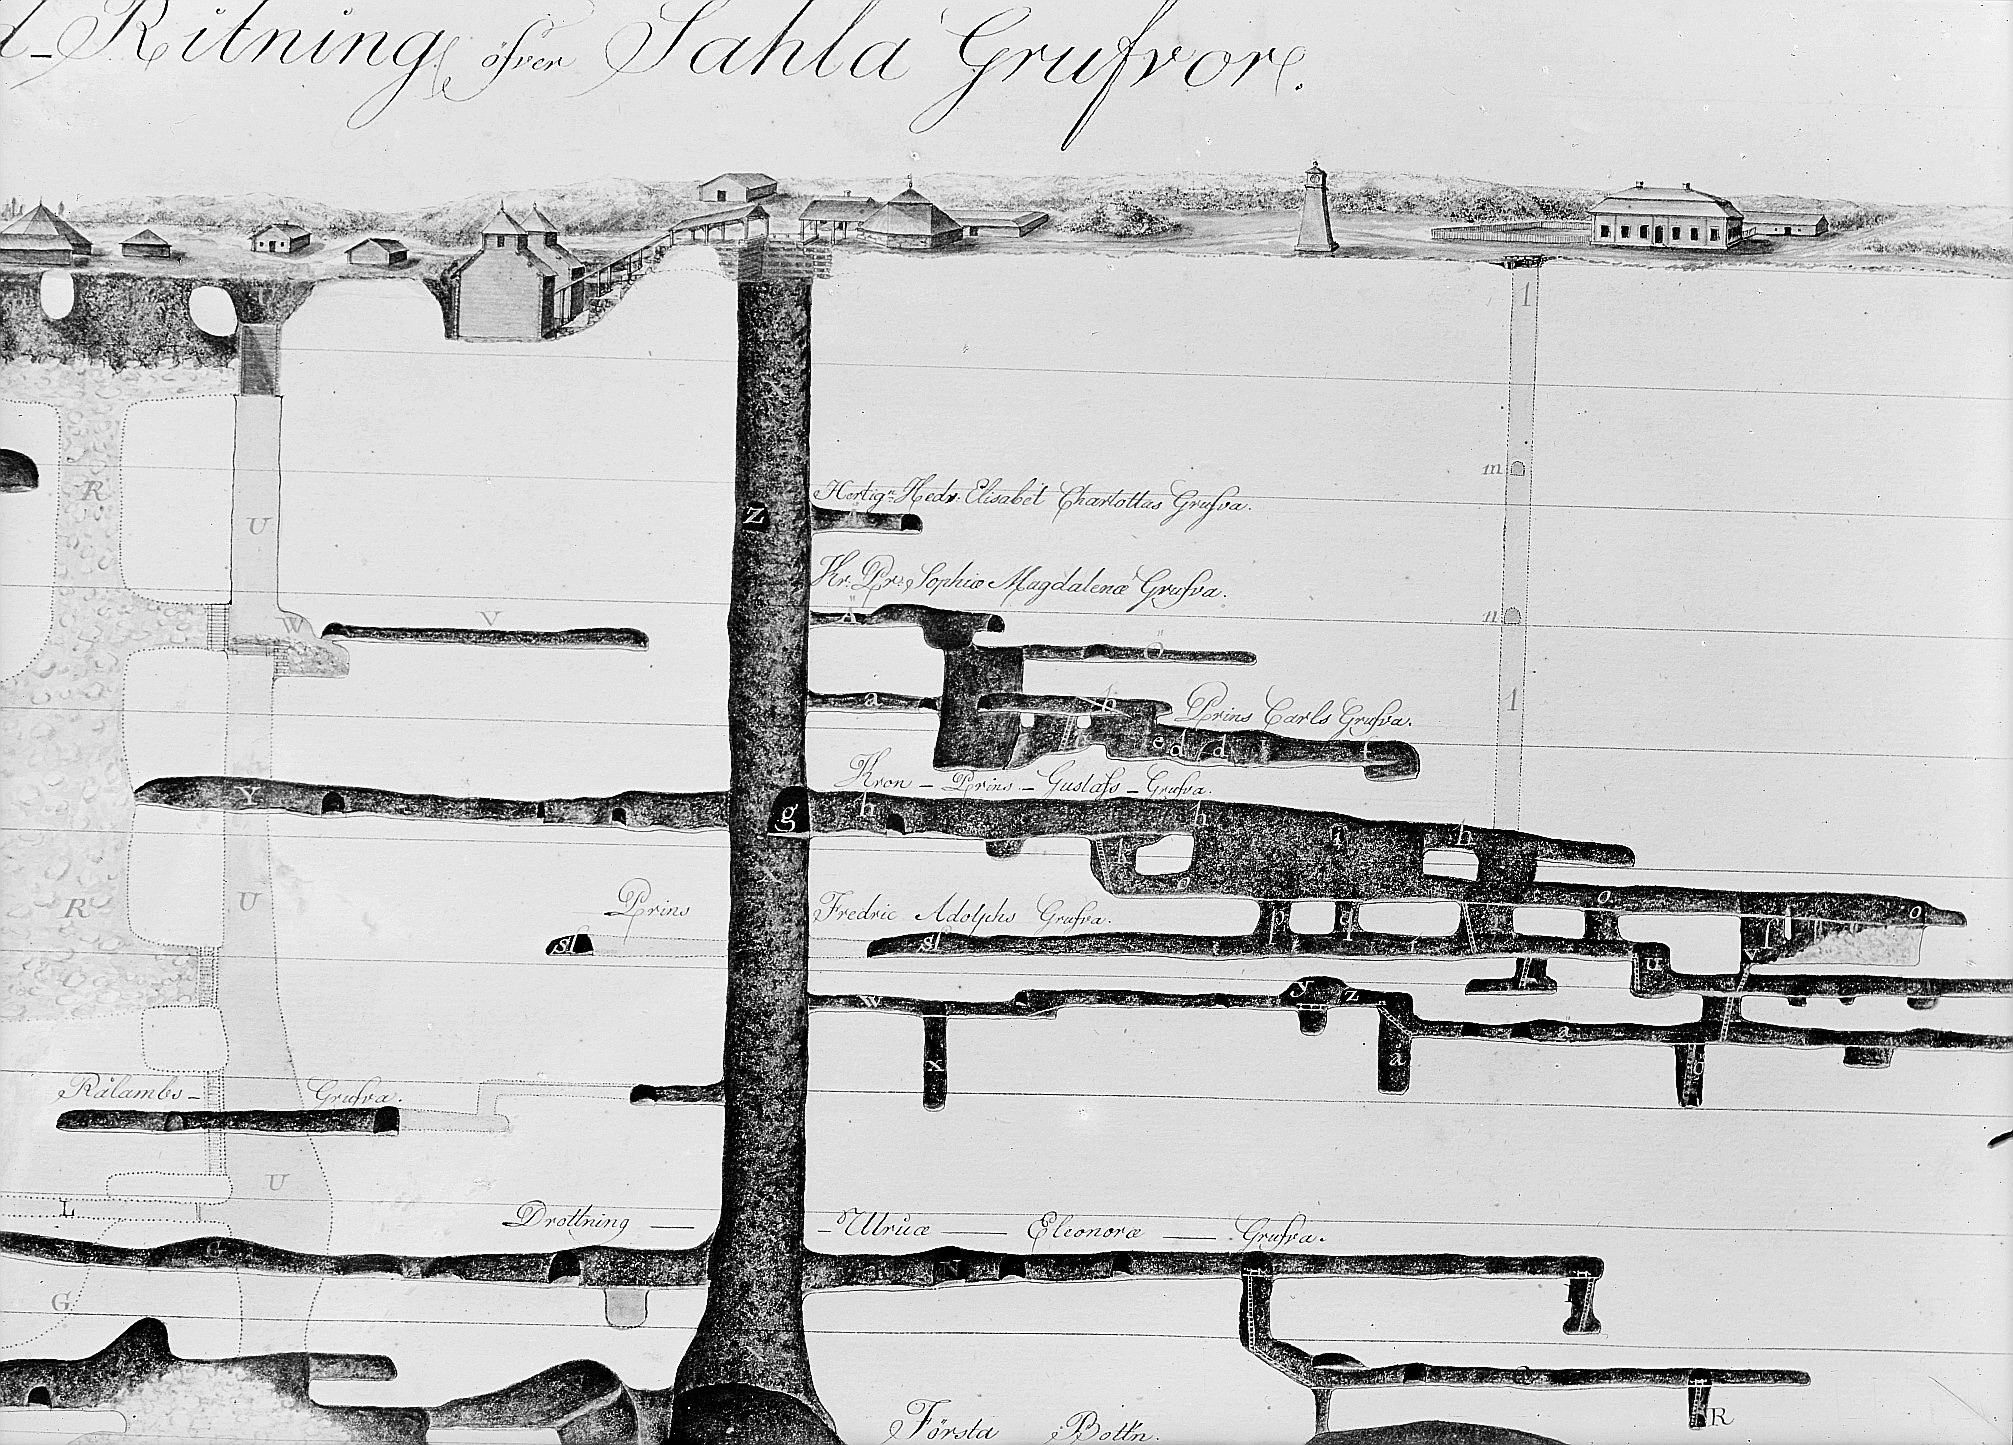 d-Ritning öfver Sahla Grufvor.
1
m
R
U
Z
Hertig: Hedv: Elisabet Charlottas Grufva.
Kr: Pr: Sophiæ Magdalenæ Grufva.
Ä
n
W
V
Ö
a
b
Prins Carls Grufva.
1
e d d f
Kron - Prins - Gustafs - Grufva.
Y
g
h
h
i
h
k
o
R
U
Prins Fredric Adolphs Grufva.
p
q
o
o
sl
sl
t
t
u
v
w
y
z
ä
x
å
ö
Rålambs- Grufva.
U
L
Drottning — - Ulricæ — Eleonoræ — Grufva.
G
N
G
R
Första Bottn.